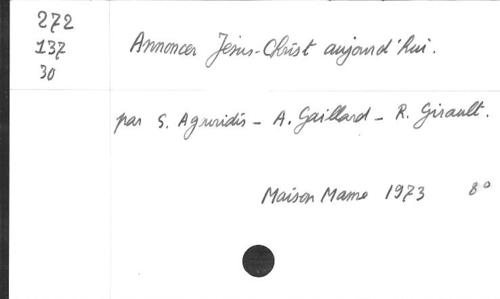 272
137
30
Annoncer Jésus-Christ aujourd'hui.
par S. Agouridis - A. Gaillard - R. Girault.
Maison Mame 1973 8°